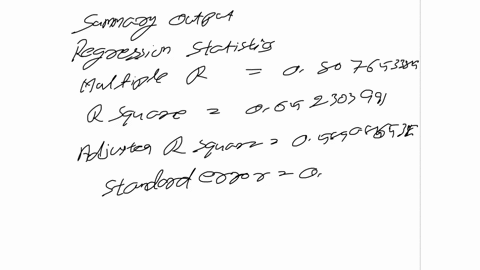 Summary output
Regression Statistics
Multiple R = 0.80765
R square = 0.652303991
Adjusted R square = 0.
Standard error = 0.